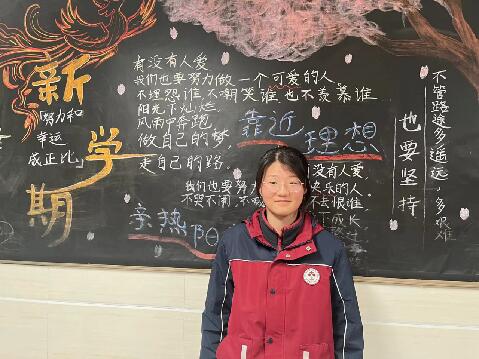 新学期
「努力和
幸运
成正比」
有没有人爱
我们也要努力做一个可爱的人
不埋怨谁不嘲笑谁也不羡慕谁
阳光下灿烂
风雨中奔跑
做自己的梦,
走自己的路。
靠近理想
没有人爱,
我们也要努力
乐的人
不哭不闹,
不去恨谁
成长
亲热
不管路途多遥远,多艰难
也要坚持